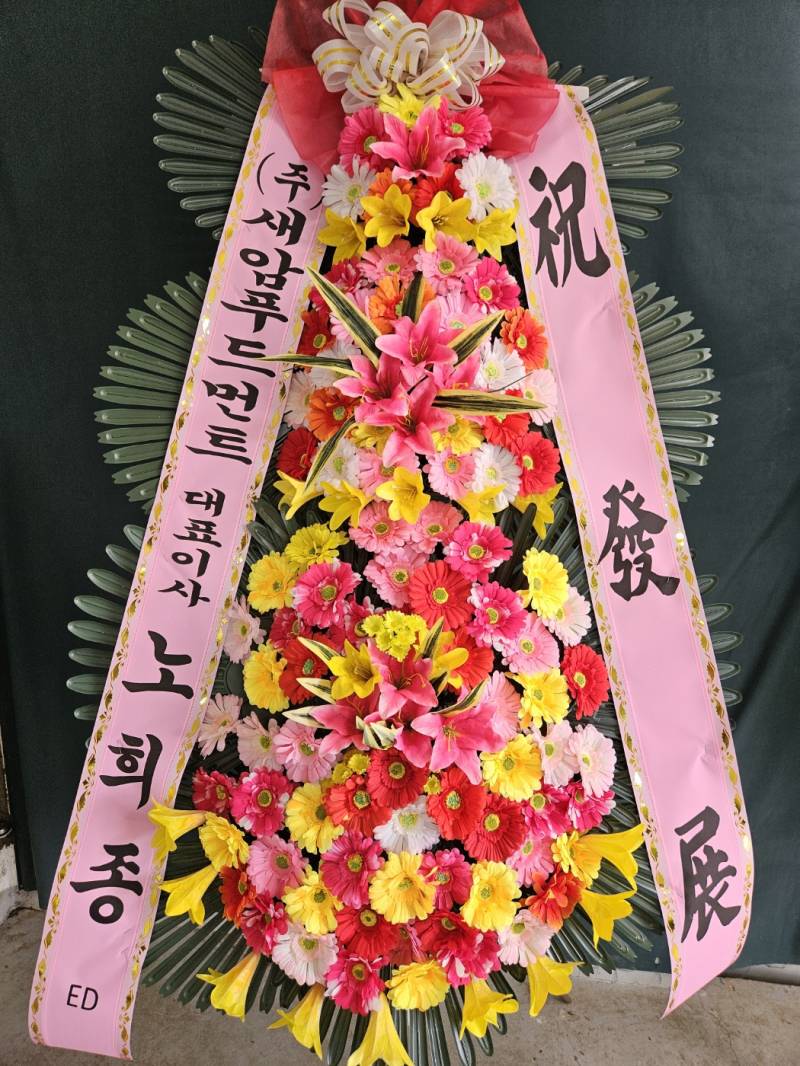 (주)새암푸드먼트 대표이사 노희종
ED
祝 發 展